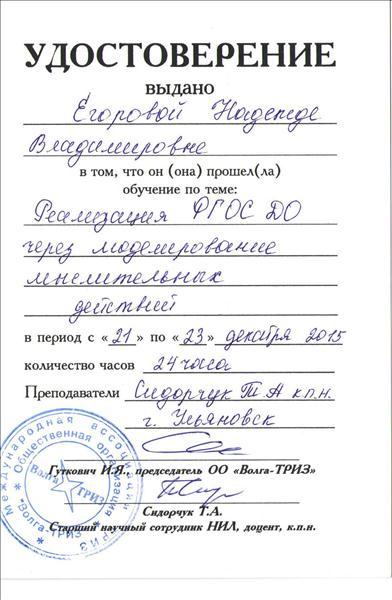 УДОСТОВЕРЕНИЕ
ВЫДАНО
Егоровой Надежде
Владимировне
в том, что он (она) прошел(ла)
обучение по теме:
Реализация ФГОС ДО
через моделирование
мыслительных
действий
в период с «21» по «23» декабря 2015
количество часов 24 часа
Преподаватели Сидорчук Т А к.п.н.
г. Ульяновск
Гуткович И.Я., председатель ОО «Волга-ТРИЗ»
Сидорчук Т.А.
Старший научный сотрудник НИЛ, доцент, к.п.н.
Международная ассоциация ТРИЗ
Общественная организация
"Волга-ТРИЗ"
Волга
ТРИЗ